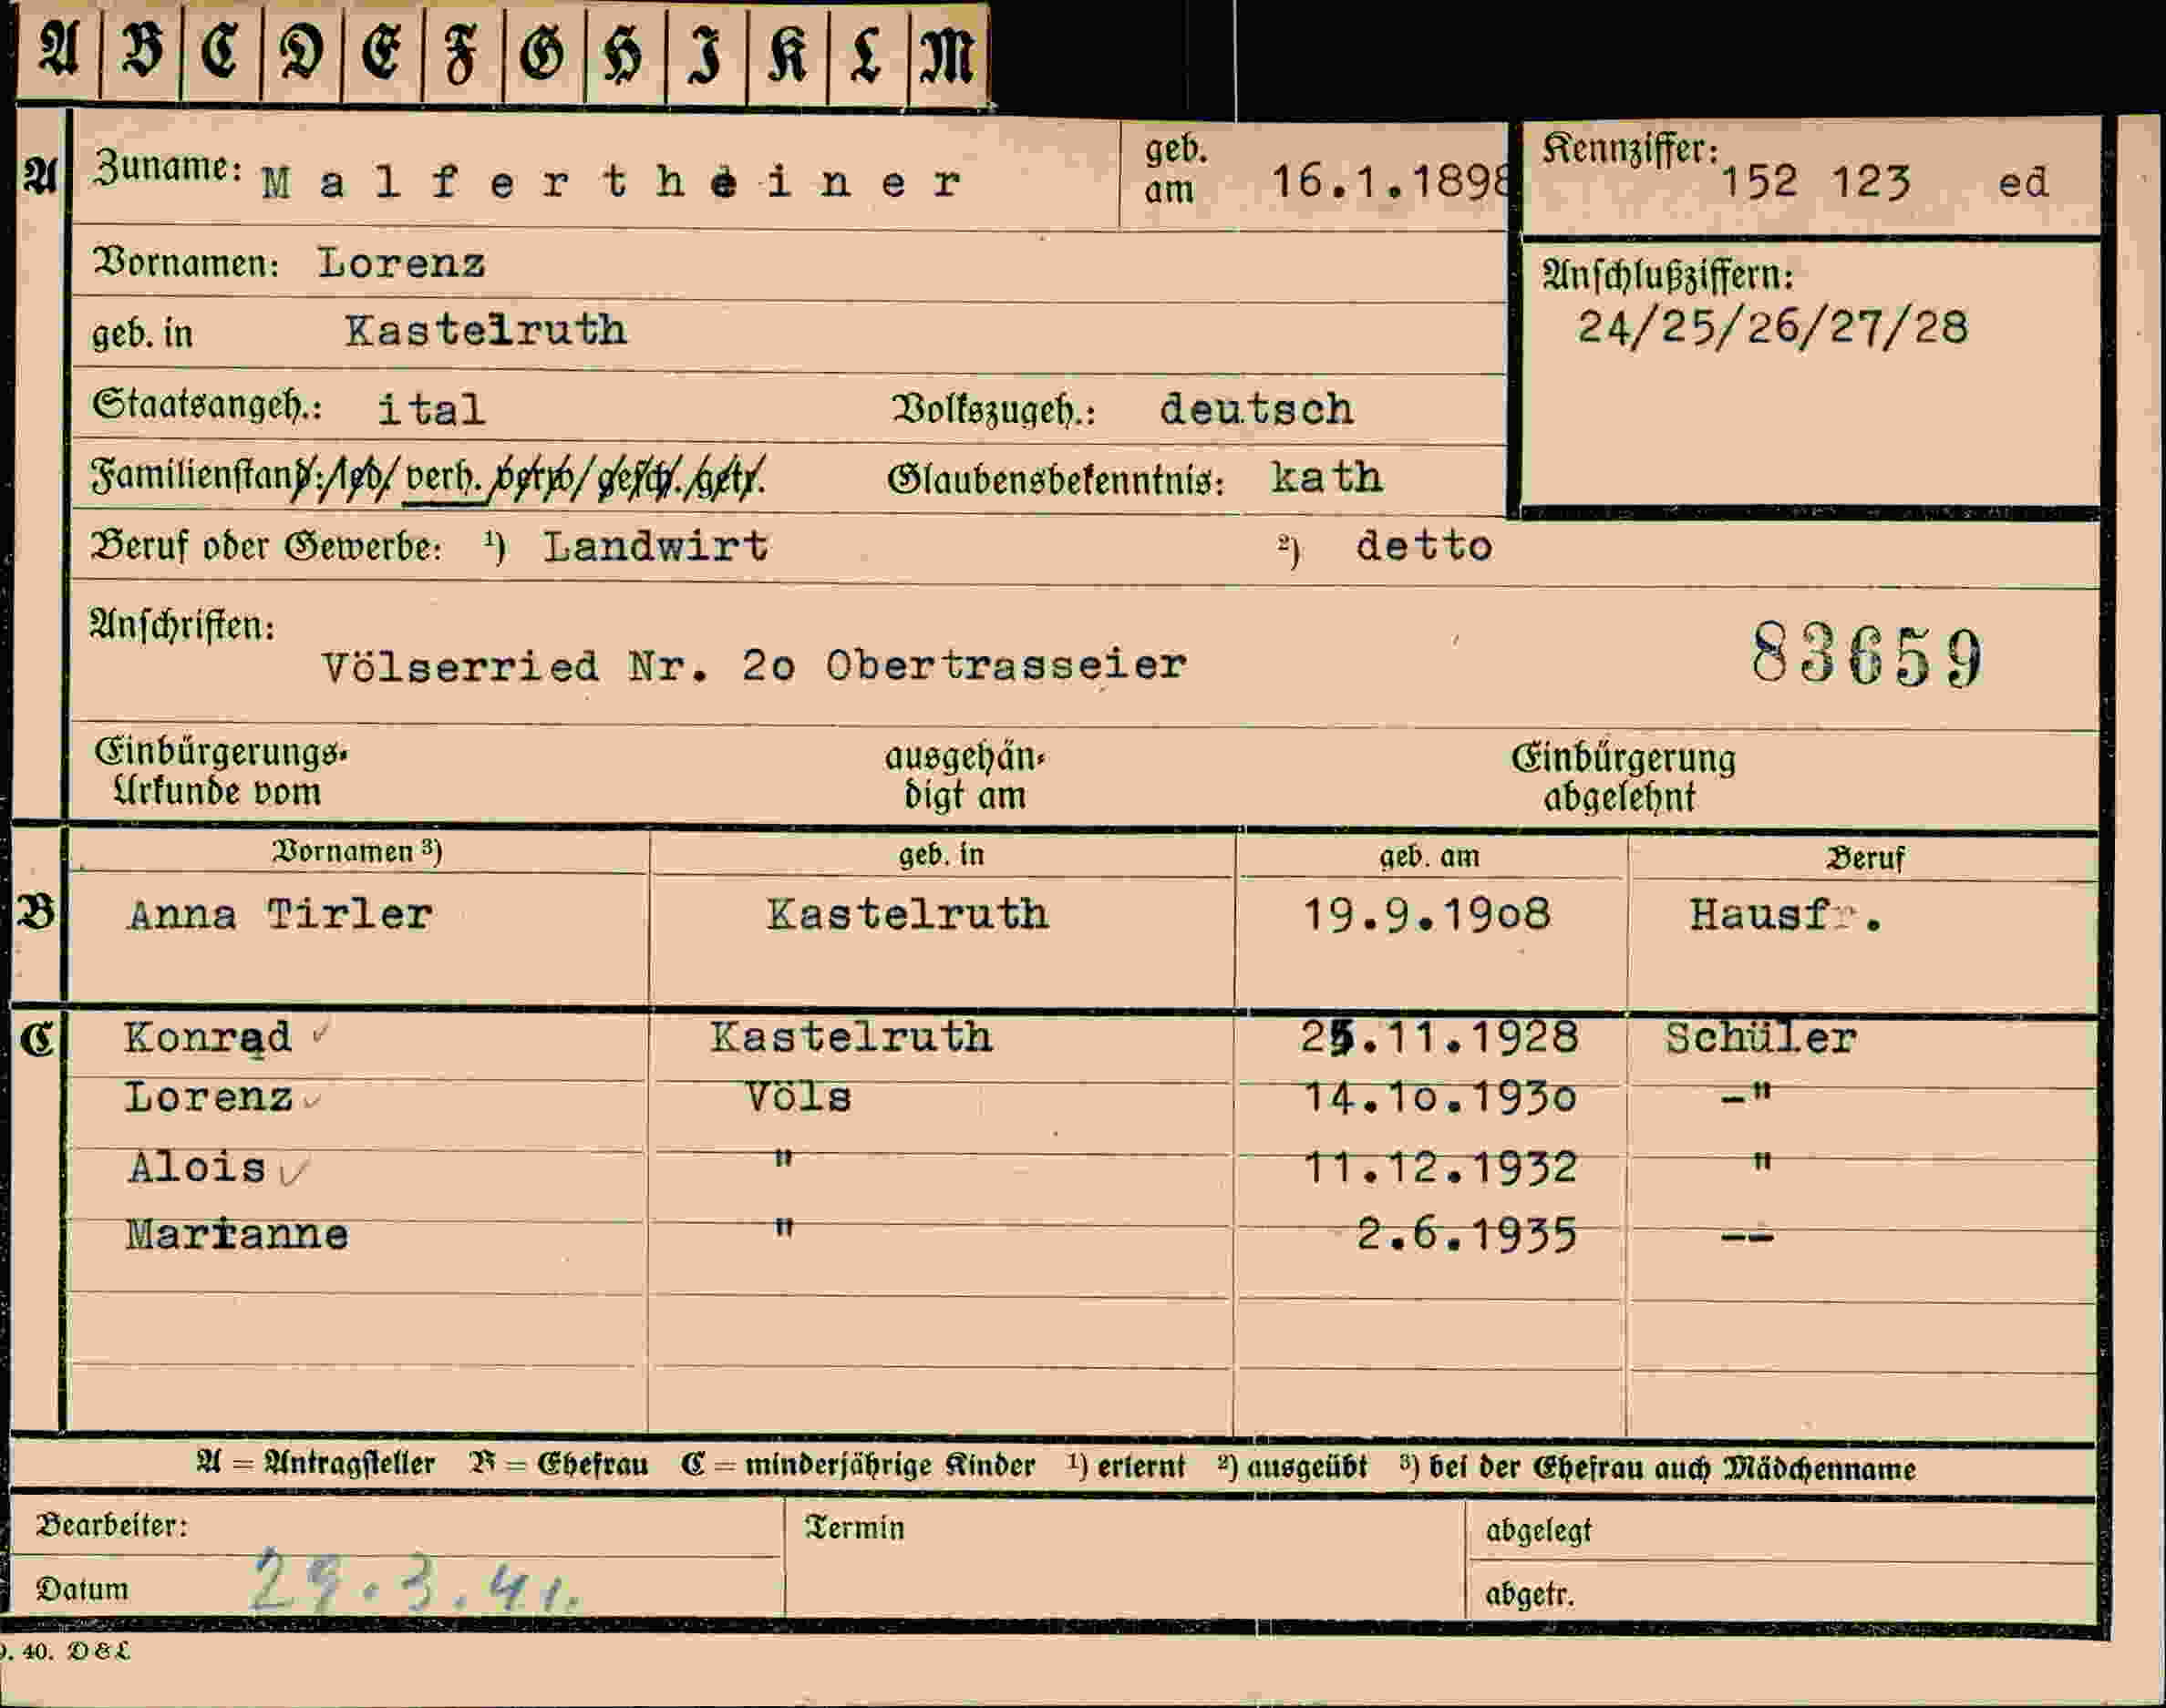 A B C D E F G H I K L M
A Zuname: Malfertheiner geb. am 16.1.1898 Kennziffer: 152 123 ed
Vornamen: Lorenz
Anschlußziffern:
24/25/26/27/28
geb. in Kastelruth
Staatsangeh.: ital Volkszugeh.: deutsch
Familienstand: led/ verh. verw/ gesch./getr. Glaubensbekenntnis: kath
Beruf oder Gewerbe: ¹) Landwirt ²) detto
Anschriften:
Völserried Nr. 2o Obertrasseier 83659
Einbürgerungs-Urkunde vom ausgehän-digt am Einbürgerung abgelehnt
Vornamen ³) geb. in geb. am Beruf
B Anna Tirler Kastelruth 19.9.19o8 Hausfr.
C Konrad ✓ Kastelruth 25.11.1928 Schüler
Lorenz ✓ Völs 14.1o.193o -"
Alois ✓ " 11.12.1932 "
Marianne " 2.6.1935 --
A = Antragsteller B = Ehefrau C = minderjährige Kinder ¹) erlernt ²) ausgeübt ³) bei der Ehefrau auch Mädchenname
Bearbeiter: Termin abgelegt
Datum 29.3.41. abgetr.
. 40. D & L